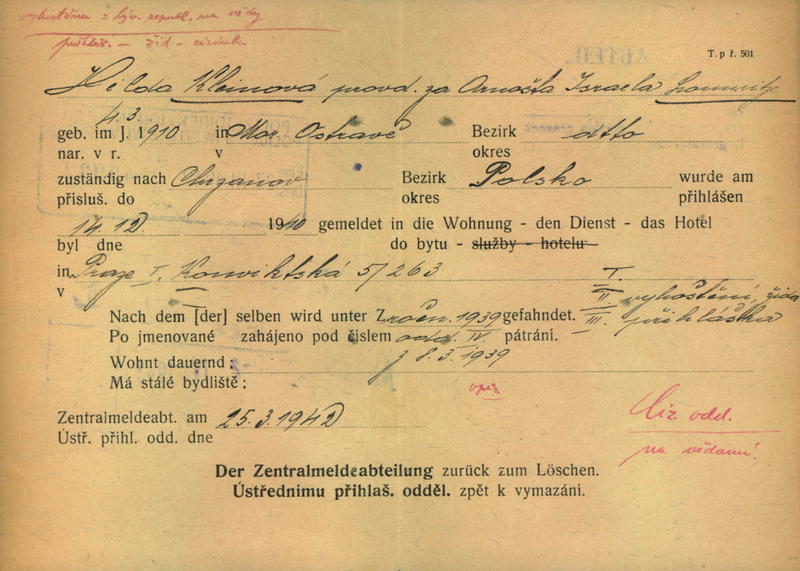 vyhoštěna z býv. republ. na vždy
přihláš. - žid - cizinka
T. p ř. 501
Hilda Kleinová provd. za Arnošta Israela
4.3.
geb. im J. 1910 in Mor. Ostravě Bezirk dtto
nar. v r. v okres
zuständig nach Chrzanov Bezirk Polsko wurde am
přísluš. do okres přihlášen
14.12. 1940 gemeldet in die Wohnung - den Dienst - das Hotel
byl dne do bytu - služby - hotelu
in Praze I. Konviktská 5/263 I.
v II. vyhoštění, žida
Nach dem [der] selben wird unter Z roen. 1939 gefahndet. III. přihláška
Po jmenované zahájeno pod číslem odd. IV pátrání.
Wohnt dauernd: z 8.3.1939
Má stálé bydliště:
opis
Zentralmeldeabt. am 25.3.1942 Ciz. odd.
Ústř. přihl. odd. dne na vědomí!
Der Zentralmeldeabteilung zurück zum Löschen.
Ústřednímu přihlaš. odděl. zpět k vymazání.